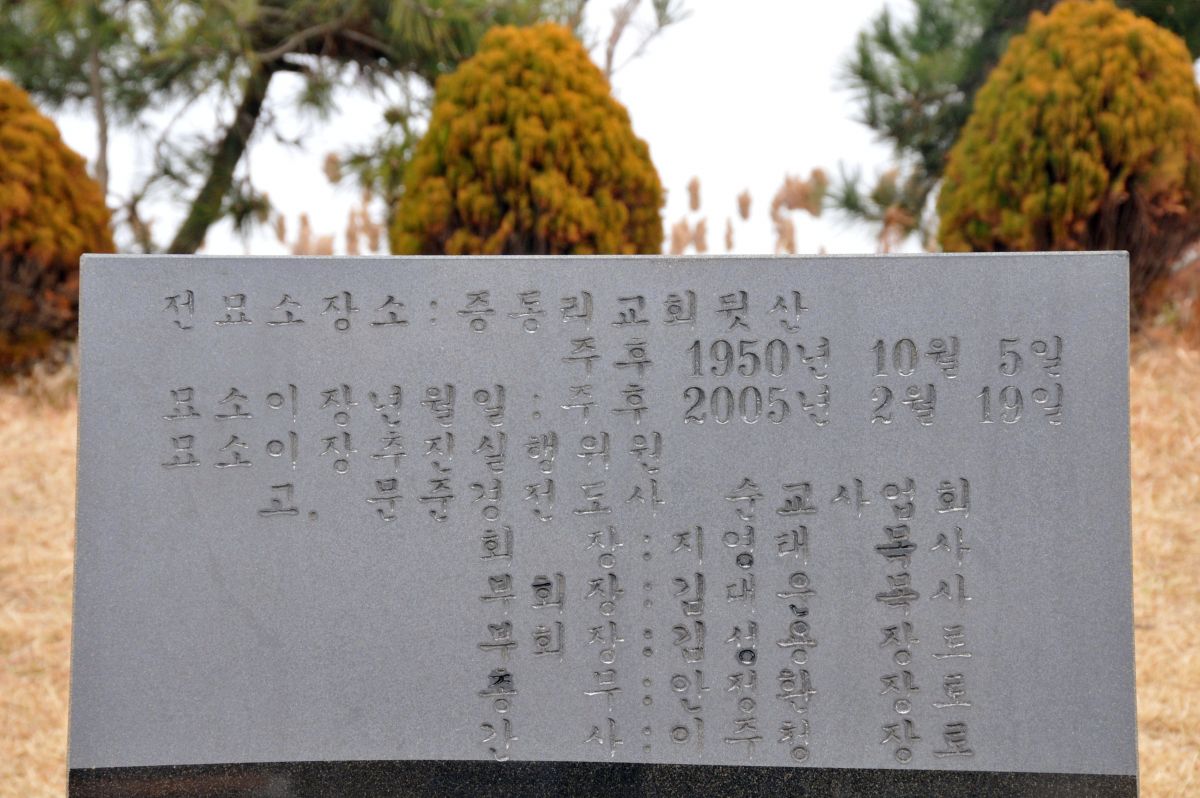 전묘소장소:증동리교회뒷산
주후 1950년 10월 5일
묘소이장년월일:주후 2005년 2월 19일
묘소이장추진실행위원
고. 문준경전도사 순교사업회
회 장:지영태 목사
부회장:김대운 목사
부회장:김성용 장로
총 무:안정환 장로
간 사:이주청 장로